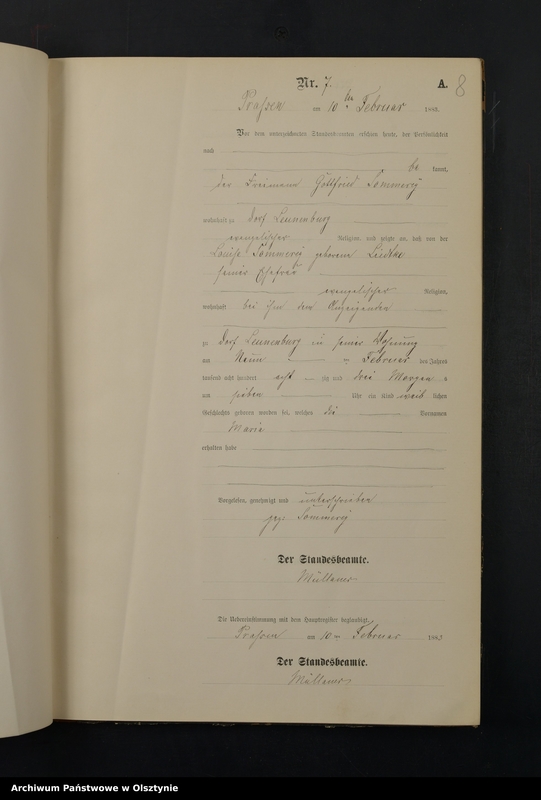 Nr. 7. A. 8
Prassen am 10ten Februar 1883.
Vor dem unterzeichneten Standesbeamten erschien heute, der Persönlichkeit
nach
be kannt,
der Freimann Gottfried Sommerey
wohnhaft zu Dorf Leunenburg
evangelischer Religion, und zeigte an, daß von der
Louise Sommerey geborene Liedtke
seiner Ehefrau
evangelischer Religion,
wohnhaft bei ihm dem Anzeigenden
zu Dorf Leunenburg in seiner Wohnung
am Neun Februar des Jahres
tausend acht hundert acht zig und drei Morgens
um sieben Uhr ein Kind weib lichen
Geschlechts geboren worden sei, welches die Vornamen
Marie
erhalten habe
Vorgelesen, genehmigt und unterschrieben
gez. Sommerey
Der Standesbeamte.
Die Uebereinstimmung mit dem Hauptregister beglaubigt.
Prassen am 10ten Februar 1883
Der Standesbeamte.
Archiwum Państwowe w Olsztynie